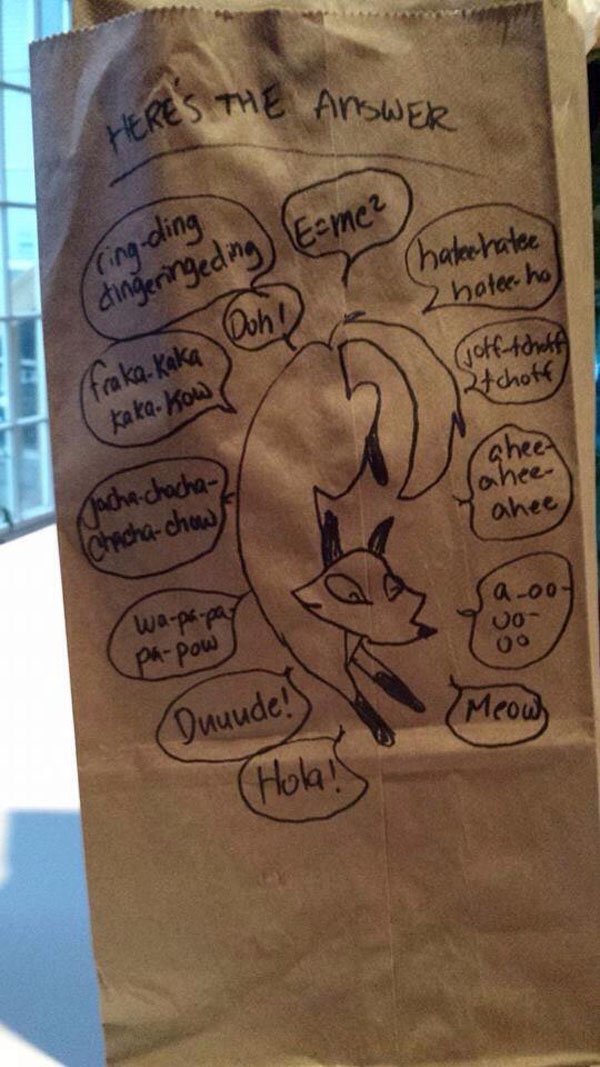 HERE'S THE ANSWER
E=mc²
ring-ding
dingeringeding
hatee-hatee
hatee-ho
Duh!
fraka-kaka
kaka-kow
joff-tchoff
tchoff
ahee-
ahee-
ahee
jacha-chacha-
chacha-chow
a-oo-
oo-
oo
wa-pa-pa-
pa-pow
Duuude!
Meow
Hola!